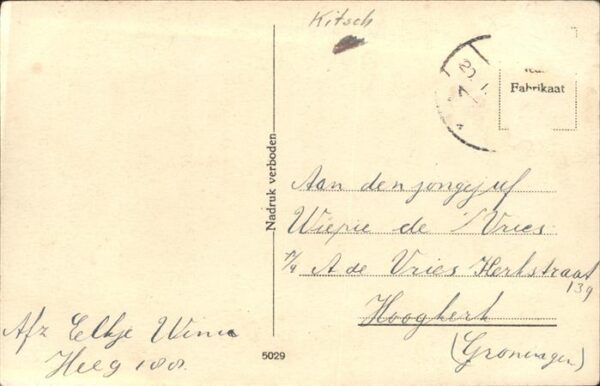 Kitsch
20
Fabrikaat
Nadruk verboden
Aan den jongejuf
Wiepie de Vries
p/a A de Vries Herkstraat
139
Hoogkerk
(Groningen)
Afz Eltje
Heeg 188.
5029